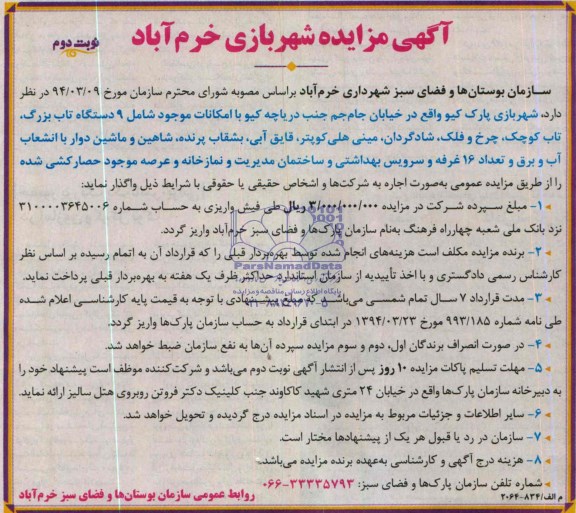 آگهی مزایده شهربازی خرم‌آباد
نوبت دوم
سازمان بوستان‌ها و فضای سبز شهرداری خرم‌آباد براساس مصوبه شورای محترم سازمان مورخ ۹۴/۰۳/۰۹ در نظر
دارد، شهربازی پارک کیو واقع در خیابان جام‌جم جنب دریاچه کیو با امکانات موجود شامل ۹ دستگاه تاب بزرگ،
تاب کوچک، چرخ و فلک، شادگردان، مینی هلی‌کوپتر، قایق آبی، بشقاب پرنده، شاهین و ماشین دوار با انشعاب
آب و برق و تعداد ۱۶ غرفه و سرویس بهداشتی و ساختمان مدیریت و نمازخانه و عرصه موجود حصارکشی شده
را از طریق مزایده عمومی به‌صورت اجاره به شرکت‌ها و اشخاص حقیقی یا حقوقی با شرایط ذیل واگذار نماید:
۱- مبلغ سپرده شرکت در مزایده ۳/۰۰۰/۰۰۰/۰۰۰ ریال طی فیش واریزی به حساب شماره ۳۱۰۰۰۰۳۶۴۵۰۰۶
نزد بانک ملی شعبه چهارراه فرهنگ به‌نام سازمان پارک‌ها و فضای سبز خرم‌آباد واریز گردد.
۲- برنده مزایده مکلف است هزینه‌های انجام شده توسط بهره‌بردار قبلی را که قرارداد آن به اتمام رسیده بر اساس نظر
کارشناس رسمی دادگستری و با اخذ تأییدیه از سازمان استاندارد حداکثر ظرف یک هفته به بهره‌بردار قبلی پرداخت نماید.
۳- مدت قرارداد ۷ سال تمام شمسی می‌باشد که مبلغ پیشنهادی با توجه به قیمت پایه کارشناسی اعلام شده
طی نامه شماره ۹۹۳/۱۸۵ مورخ ۱۳۹۴/۰۳/۲۳ در ابتدای قرارداد به حساب سازمان پارک‌ها واریز گردد.
۴- در صورت انصراف برندگان اول، دوم و سوم مزایده سپرده آن‌ها به نفع سازمان ضبط خواهد شد.
۵- مهلت تسلیم پاکات مزایده ۱۰ روز پس از انتشار آگهی نوبت دوم می‌باشد و شرکت‌کننده موظف است پیشنهاد خود را
به دبیرخانه سازمان پارک‌ها واقع در خیابان ۲۴ متری شهید کاکاوند جنب کلینیک دکتر فروتن روبروی هتل سالیز ارائه نماید.
۶- سایر اطلاعات و جزئیات مربوط به مزایده در اسناد مزایده درج گردیده و تحویل خواهد شد.
۷- سازمان در رد یا قبول هر یک از پیشنهادها مختار است.
۸- هزینه درج آگهی و کارشناسی به‌عهده برنده مزایده می‌باشد.
شماره تلفن سازمان پارک‌ها و فضای سبز: ۳۳۳۳۵۷۹۳-۰۶۶
م الف/۸۳۴-۲۰۶۴
روابط عمومی سازمان بوستان‌ها و فضای سبز خرم‌آباد
ParsNamadData